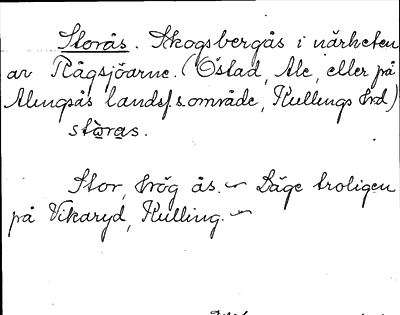 Storås. Skogsbergås i närheten
av Rågsjöarne. (Östad, Ale, eller på
Alingsås landsf.s område, Kullings hrd)
stɷras.
Stor, hög ås. – Läge troligen
på Vikaryd, Kulling. –